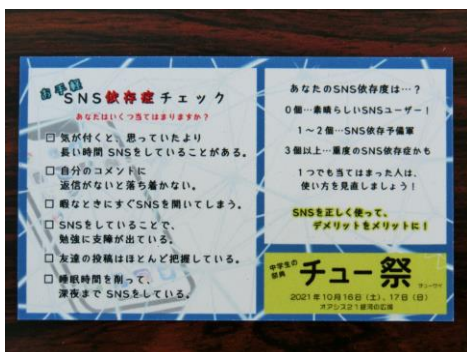 お手軽
SNS依存症チェック
あなたはいくつ当てはまりますか？
□ 気が付くと、思っていたより
長い時間 SNSをしていることがある。
□ 自分のコメントに
返信がないと落ち着かない。
□ 暇なときにすぐSNSを開いてしまう。
□ SNSをしていることで、
勉強に支障が出ている。
□ 友達の投稿はほとんど把握している。
□ 睡眠時間を削って、
深夜まで SNSをしている。
あなたのSNS依存度は…？
0個…素晴らしいSNSユーザー！
1～2個…SNS依存予備軍
3個以上…重度のSNS依存症かも
1つでも当てはまった人は、
使い方を見直しましょう！
SNSを正しく使って、
デメリットをメリットに！
中学生の
祭典
チュー祭
チューサイ
2021年10月16日（土）、17日（日）
オアシス21銀河の広場